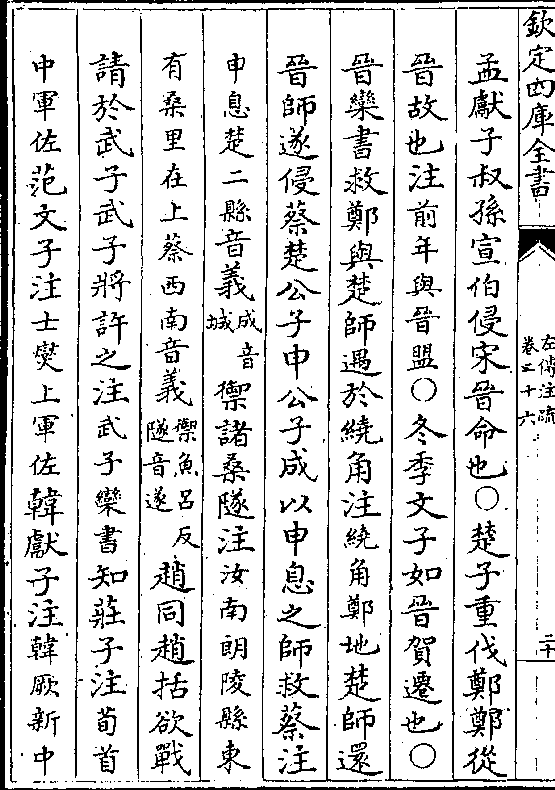 欽定四庫全書
左傳注疏
卷二十六
二十
孟獻子叔孫宣伯侵宋晉命也○楚子重伐鄭鄭從
晉故也注前年與晉盟○冬季文子如晉賀遷也○
晉欒書救鄭與楚師遇於繞角注繞角鄭地楚師還
晉師遂侵蔡楚公子申公子成以申息之師救蔡注
申息楚二縣音義成音城禦諸桑隧注汝南朗陵縣東
有桑里在上蔡西南音義禦魚呂反隧音遂趙同趙括欲戰
請於武子武子將許之注武子欒書知莊子注荀首
中軍佐范文子注士燮上軍佐韓獻子注韓厥新中